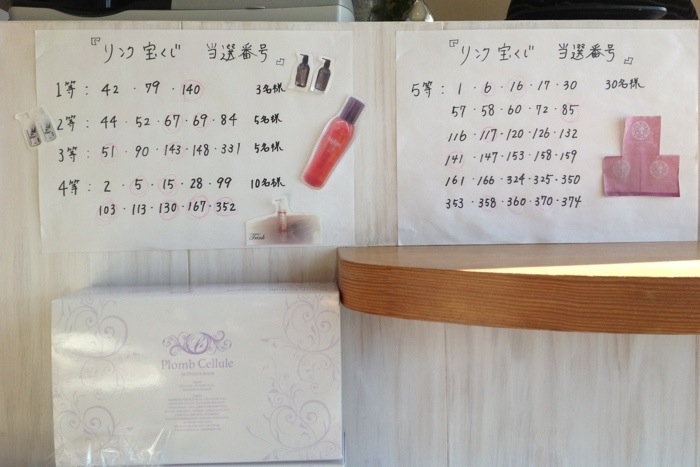 『リンク宝くじ 当選番号』
1等: 42・79・140 3名様
2等: 44・52・67・69・84 5名様
3等: 51・90・143・148・331 5名様
4等: 2・5・15・28・99 10名様
103・113・130・167・352
『リンク宝くじ 当選番号』
5等: 1・6・16・17・30 30名様
57・58・60・72・85
116・117・120・126・132
141・147・153・158・159
161・166・324・325・350
353・358・360・370・374
Plomb Cellule